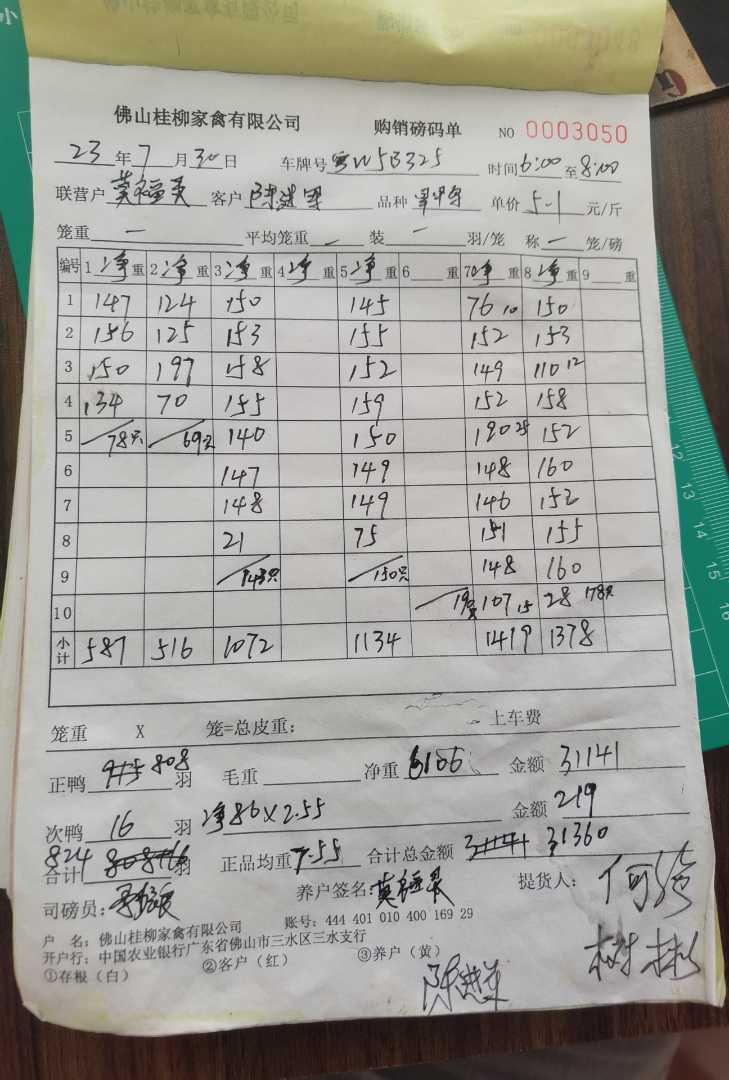 佛山桂柳家禽有限公司 购销磅码单 NO 0003050
23年7月30日 车牌号 W5B325 时间6:00至8:00
联营户 莫福 客户 陈进 品种 单价 5-1 元/斤
笼重 一 平均笼重 一 装 一 羽/笼 称 一 笼/磅
编号 1 净重 2 净重 3 净重 4 净重 5 净重 6 重 7 净重 8 净重 9 重
1 147 124 150 145 76 10 150
2 156 125 153 155 152 153
3 150 197 158 152 149 110 12
4 134 70 155 159 152 158
5 78只 69只 140 150 190 25 152
6 147 149 148 160
7 148 149 146 152
8 21 75 151 155
9 143只 150只 148 160
10 107 15 28 178只
小计 587 516 1072 1134 1419 1378
笼重 X 笼=总皮重： 上车费
正鸭 808 羽 毛重 净重 6106 金额 31141
次鸭 16 羽 净86×2.55 金额 219
合计 824 羽 正品均重 7.55 合计总金额 31360
司磅员： 养户签名： 莫福 提货人： 何
户 名：佛山桂柳家禽有限公司 账号：444 401 010 400 169 29
开户行：中国农业银行广东省佛山市三水区三水支行
①存根（白） ②客户（红） ③养户（黄）
陈进